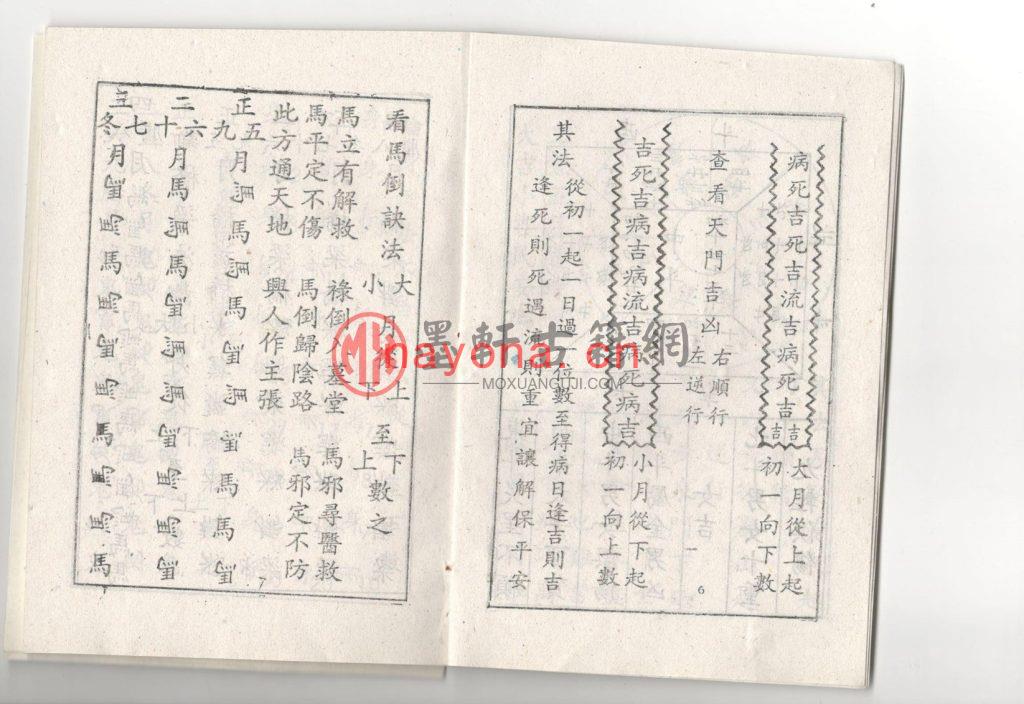 病死吉死吉流吉病死吉吉吉 大月從上起
初一向下數
查看天門吉凶 右順行
左逆行
吉死吉病吉病流吉病死病吉 小月從下起
初一向上數
其法 從初一起一日過一位數至得病日逢吉則吉
逢死則死過流則重宜讓解保平安
6
看馬倒訣法 大月從上至下數之
小 下 上
馬立有解救 祿倒 墓堂 馬邪尋醫救
馬平定不傷 馬倒歸陰路 馬邪定不防
此方通天地 興人作主張
正五九月馬馬馬馬馬馬馬馬馬馬
二六十月馬馬馬馬馬馬馬馬馬馬
三七冬月馬馬馬馬馬馬馬馬馬馬
7
墨軒古籍網
mayona.cn
MOXUANGUJI.COM